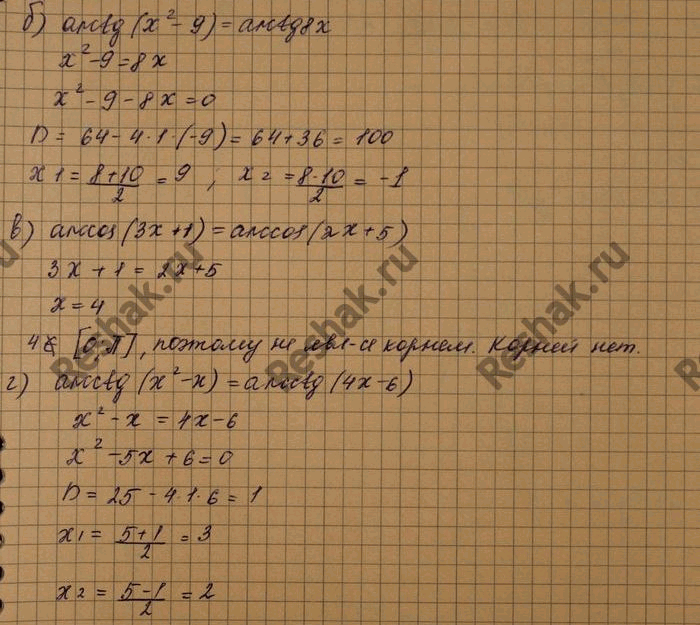 б) arcctg (x² - 9) = arcctg 8x
x² - 9 = 8x
x² - 9 - 8x = 0
D = 64 - 4·1·(-9) = 64 + 36 = 100
x1 = (8+10)/2 = 9 ; x2 = (8-10)/2 = -1
в) arccos (3x+1) = arccos (2x+5)
3x + 1 = 2x+5
x = 4
4∉ [0;π], поэтому не явл-ся корнем. Корней нет.
г) arcctg (x² - x) = arcctg (4x-6)
x² - x = 4x - 6
x² - 5x + 6 = 0
D = 25 - 4·1·6 = 1
x1 = (5+1)/2 = 3
x2 = (5-1)/2 = 2
Reshak.ru
Reshak.ru
Reshak.ru